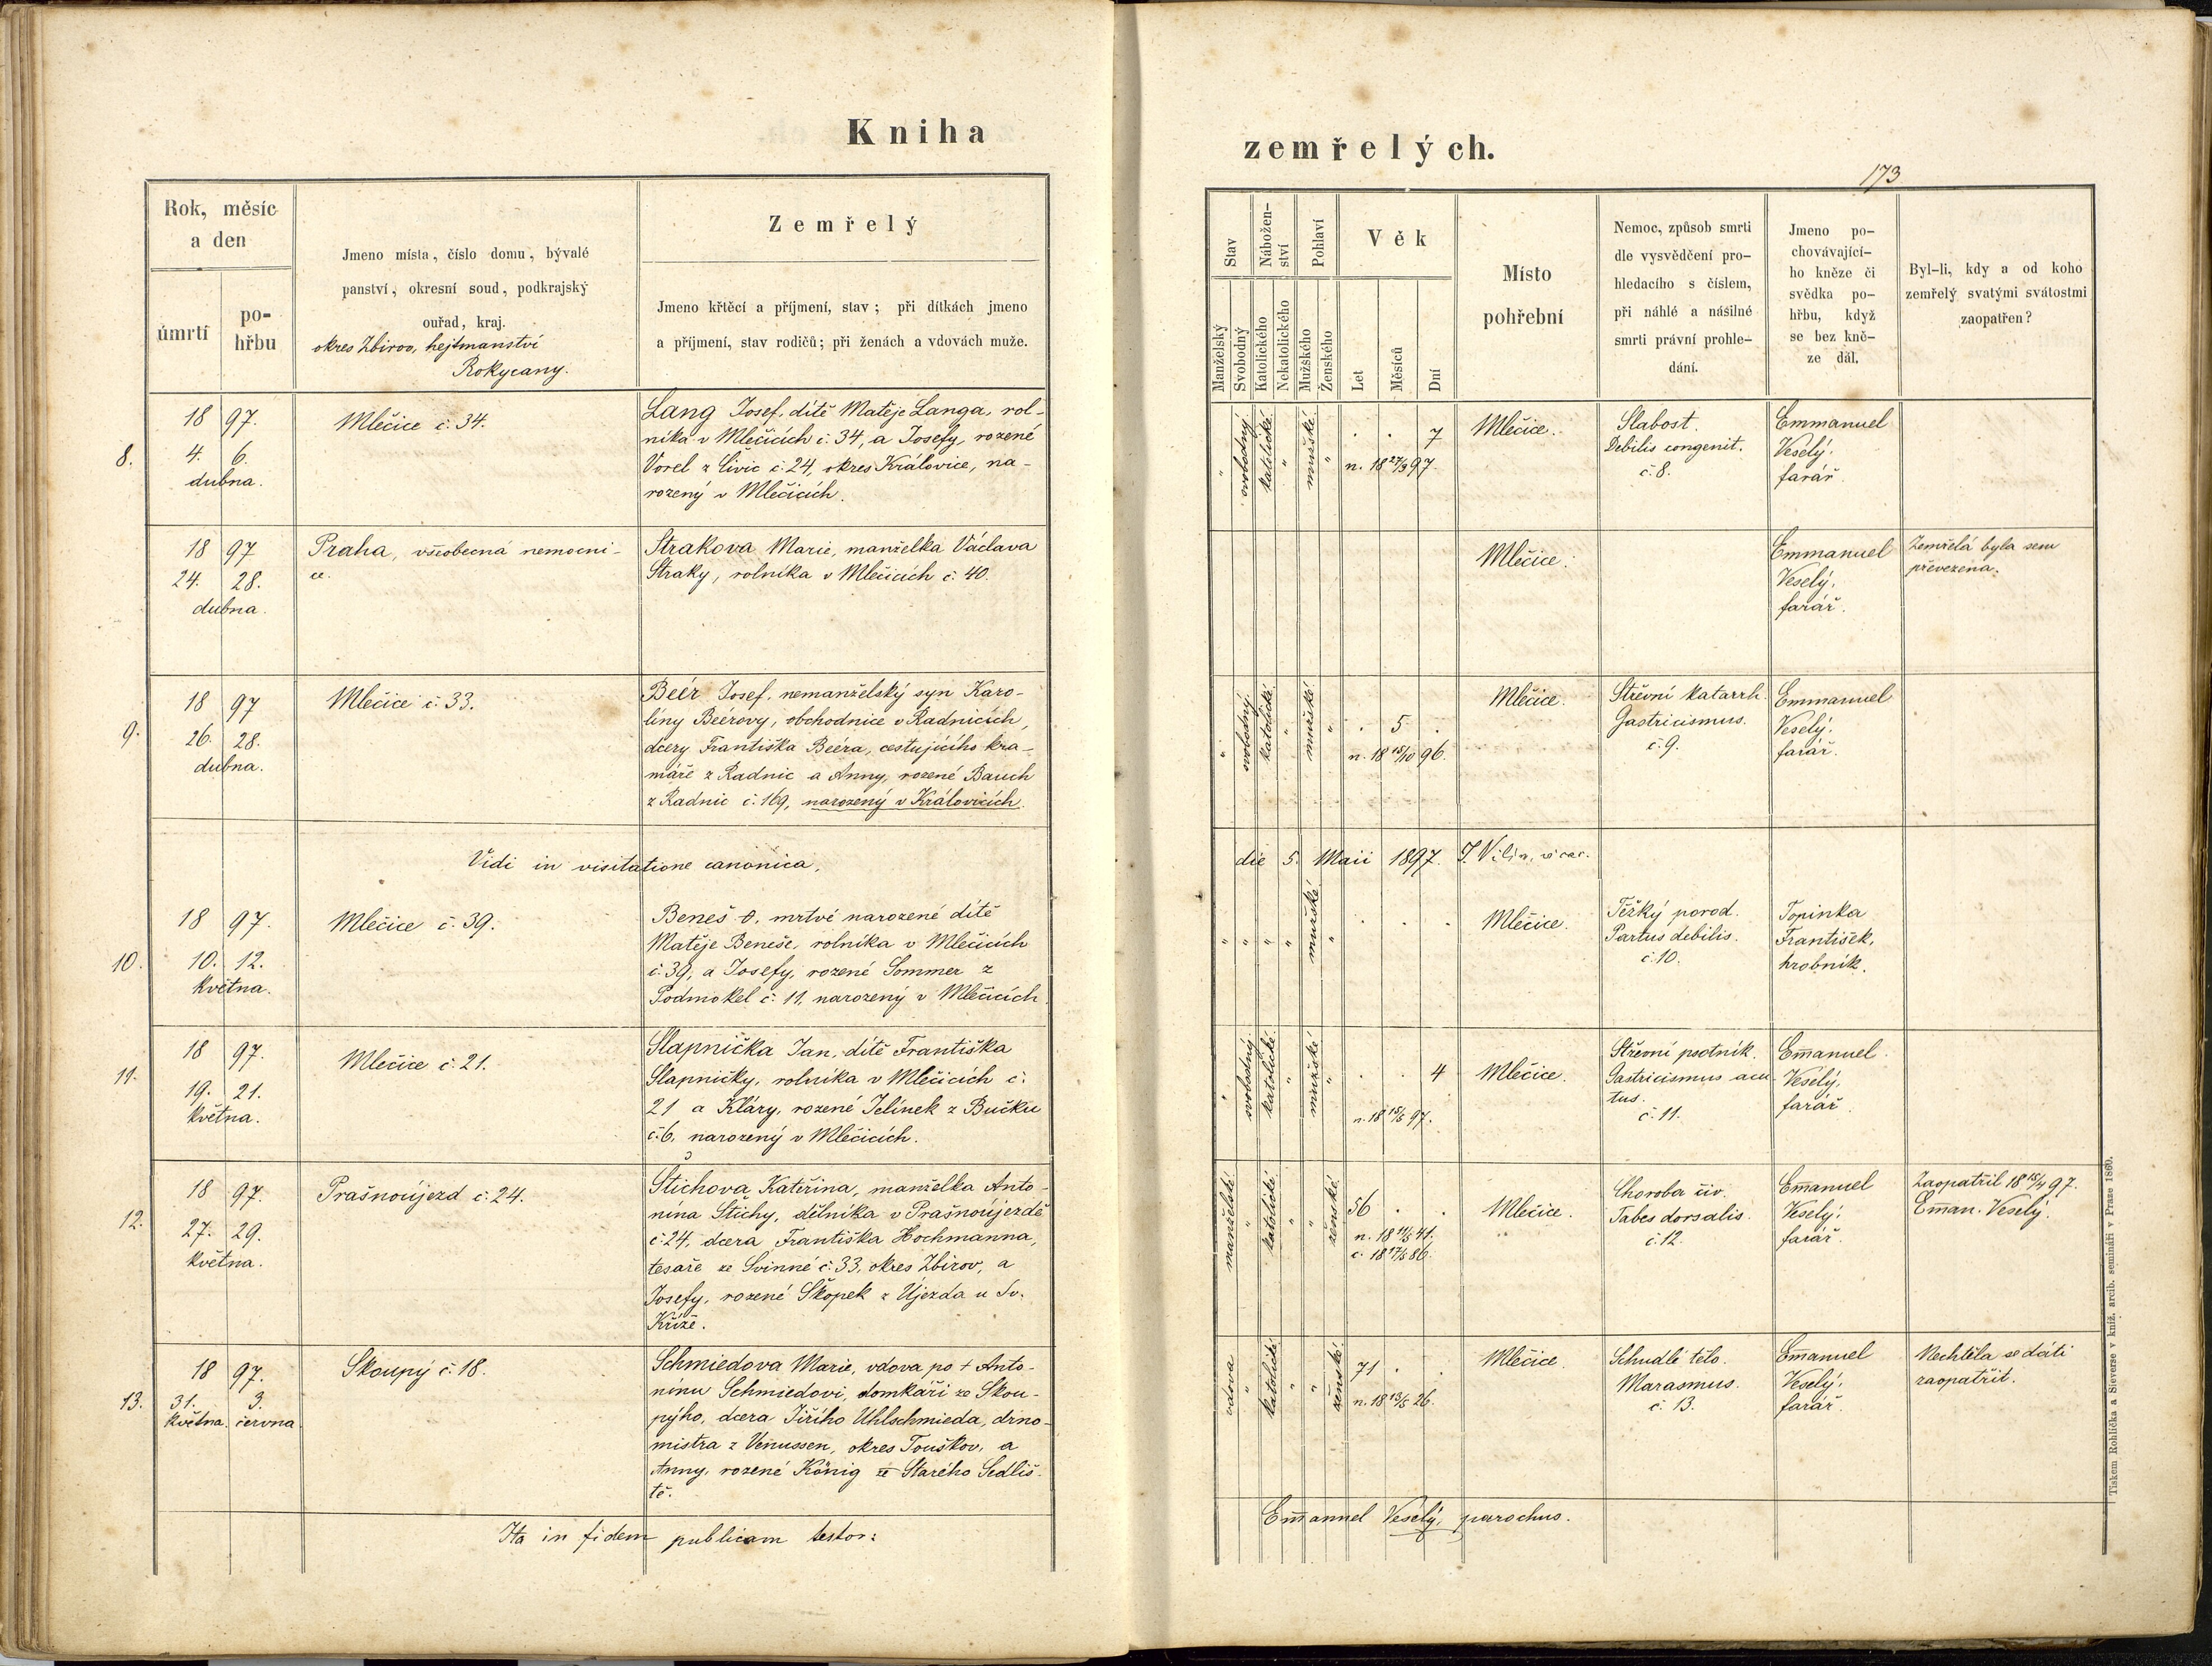 Kniha
Rok, měsíc
a den
úmrtí
po-
hřbu
Jmeno místa, číslo domu, bývalé
panství, okresní soud, podkrajský
ouřad, kraj.
okres Zbirov, hejtmanství
Rokycany.
Zemřelý
Jmeno křtěcí a příjmení, stav; při dítkách jmeno
a příjmení, stav rodičů; při ženách a vdovách muže.
8.
18 97.
4. 6.
dubna.
Mlečice č. 34.
Lang Josef, dítě Matěje Langa, rol-
níka v Mlečicích č. 34, a Josefy, rozené
Vorel z Čivic č. 24, okres Královice, na-
rozený v Mlečicích.
18 97
24. 28.
dubna.
Praha, všeobecná nemocni-
ce.
Strakova Marie, manželka Václava
Straky, rolníka v Mlečicích č. 40.
9.
18 97
26. 28.
dubna.
Mlečice č. 33.
Beér Josef, nemanželský syn Karo-
líny Beérovy, obchodnice v Radnicích,
dcery Františka Beéra, cestujícího kra-
máře z Radnic a Anny, rozené Bauch
z Radnic č. 169, narozený v Královicích.
Vidi in visitatione canonica,
10.
18 97.
10. 12.
května.
Mlečice č. 39.
Beneš O, mrtvé narozené dítě
Matěje Beneše, rolníka v Mlečicích
č. 39, a Josefy, rozené Sommer z
Podmokel č. 11, narozený v Mlečicích
11.
18 97.
19. 21.
května.
Mlečice č. 21.
Slapnička Jan, dítě Františka
Slapničky, rolníka v Mlečicích č.
21 a Kláry, rozené Jelínek z Bučku
č. 6, narozený v Mlečicích.
12.
18 97.
27. 29.
května.
Prašnoújezd č. 24.
Štichova Kateřina, manželka Anto-
nína Štichy, dělníka v Prašnoújezdě
č. 24, dcera Františka Hochmanna,
tesaře ze Svinné č. 33, okres Zbirov, a
Josefy, rozené Skopek z Újezda u Sv.
Kříže.
13.
18 97.
31. 3.
května. června
Skoupý č. 18.
Schmiedova Marie, vdova po + Anto-
nínu Schmiedovi, domkáři ze Skou-
pýho, dcera Jiřího Uhlschmieda, drno-
mistra z Venussen, okres Touškov, a
Anny, rozené König ze Starého Sedliš-
tě.
Ita in fidem publicam testor:
zemřelých.
173
Stav
Nábožen-
ství
Pohlaví
Věk
Manželský
Svobodný
Katolického
Nekatolického
Mužského
Ženského
Let
Měsíců
Dní
Místo
pohřební
Nemoc, způsob smrti
dle vysvědčení pro-
hledacího s číslem,
při náhlé a násilné
smrti právní prohle-
dání.
Jmeno po-
chovávající-
ho kněze či
svědka po-
hřbu, když
se bez kně-
ze dál.
Byl-li, kdy a od koho
zemřelý svatými svátostmi
zaopatřen?
" svobodný katolické " mužské "
. . 7
n. 18 27/3 97.
Mlečice.
Slabost.
Debilis congenit.
č. 8.
Emmanuel
Veselý,
farář.
Mlečice.
Emmanuel
Veselý,
farář.
Zemřelá byla sem
převezena.
" svobodný katolické " mužské "
. 5 .
n. 18 15/10 96.
Mlečice.
Střevní katarrh.
Gastricismus.
č. 9.
Emmanuel
Veselý,
farář.
die 5. Maii 1897. J. Vilím, vicar.
" " " " mužské "
. . .
Mlečice.
Těžký porod.
Partus debilis.
č. 10.
Topinka
František,
hrobník.
" svobodný katolické " mužské "
. . 4
n. 18 15/5 97.
Mlečice.
Střevní psotník.
Gastricismus acu-
tus.
č. 11.
Em̄anuel
Veselý,
farář.
manželské " katolické " " ženské
56 . .
n. 18 11/5 41.
č. 18 17/5 86.
Mlečice.
Choroba čiv.
Tabes dorsalis.
č. 12.
Em̄anuel
Veselý,
farář.
Zaopatřil 18 15/4 97.
Em̄an. Veselý.
vdova " katolické " " ženské
71 . .
n. 18 13/5 26.
Mlečice.
Schudlé tělo.
Marasmus.
č. 13.
Em̄anuel
Veselý,
farář.
Nechtěla se dáti
zaopatřit.
Em̄anuel Veselý, parochus.
Tiskem Rohlíčka a Sieverse v kníž. arcib. semináři v Praze 1860.